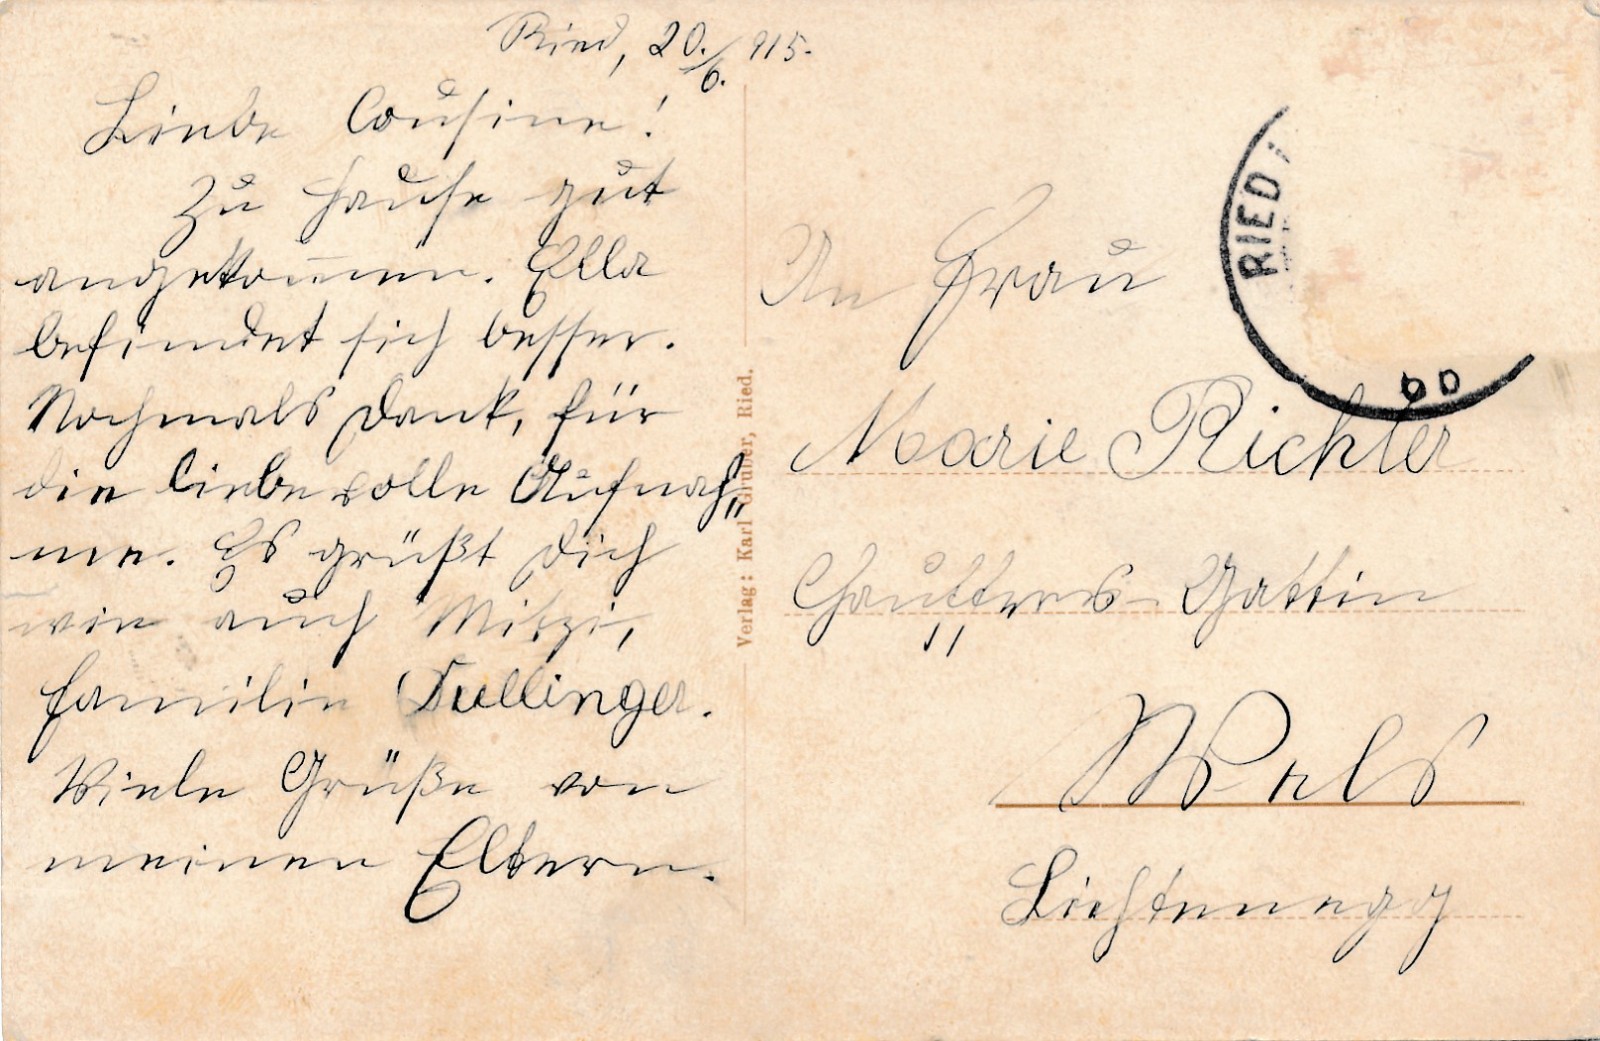 Ried, 20./6. 915.
Liebe Cousine!
Zu Hause gut
angekom̅en. Ella
befindet sich besser.
Nochmals Dank, für
die liebevolle Aufnah„
me. Es grüßt Dich
wie auch Mitzi,
Familie Dullinger.
Viele Grüße von
meinen Eltern.
Verlag: Karl Gruber, Ried.
RIED
An Frau
Marie Richter
Chauffeurs-Gattin
"
Wels
Lichtenegg